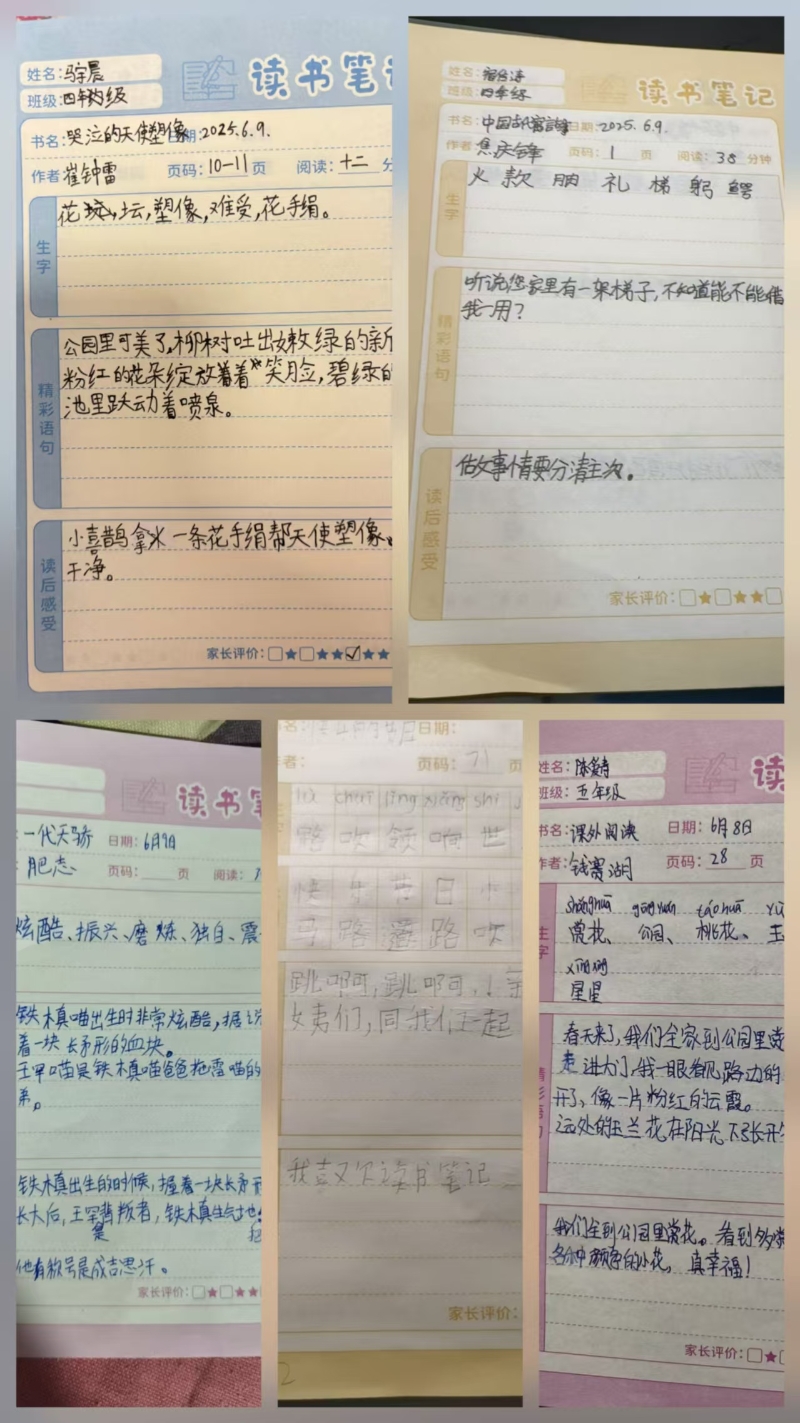 姓名:骆宇晨
读书笔记
班级:四年级
书名:哭泣的天使塑像 日期:2025.6.9.
作者 崔钟雷 页码:10-11页 阅读:十二 分
生字
花 坛,塑像,难受,花手绢。
精彩语句
公园里可美了,柳树吐出嫩绿的新
粉红的花朵绽放着着笑脸,碧绿的
池里跃动着喷泉。
读后感受
小喜鹊拿来一条花手绢帮天使塑像
干净。
家长评价:□★□★★☑★★
姓名:
班级:四年级
读书笔记
书名:中国古代寓言 日期:2025.6.9.
作者: 页码:1 页 阅读:38 分钟
生字
火 款 腼 礼 梯 躬 鳄
精彩语句
听说您家里有一架梯子,不知道能不能借
我一用?
读后感受
做事情要分清主次。
家长评价:□★□★★□
读书笔
一代天骄 日期:6月9日
肥志 页码: 页 阅读:
炫酷、振兴、磨炼、独自、震
铁木真喵出生时非常炫酷,据说
着一块长矛形的血块。
王罕喵是铁木真喵爸爸拖雷喵的
弟。
铁木真出生的时候,握着一块长矛形
长大后,王罕背叛者,铁木真
是
他有称号是成吉思汗。
家长评价:□★□★★□★★
日期:
者: 页码:71 页
lù chuī lǐng xiǎng shì
路 吹 领 响 世
快 乐 节 日
马 路 路 吹
跳啊,跳啊,!亲
姨们,同我们一起
我喜欢读书笔记
家长评价:
2
姓名:陈
读
班级:五年级
书名:课外阅读 日期:6月8日
作者:钱赛湖 页码:28 页
生字
shǎnghuā gōngyuán táohuā yù
赏花、公园、桃花、玉
xīngxīng
星星
精彩语句
春天来了,我们全家到公园里赏
走进大门,我一眼看见路边的
开了,像一片粉红的云霞。
远处的玉兰花在阳光下张开
我们全到公园里赏花。看到
各种颜色的小花,真幸福!
家长评价:□★